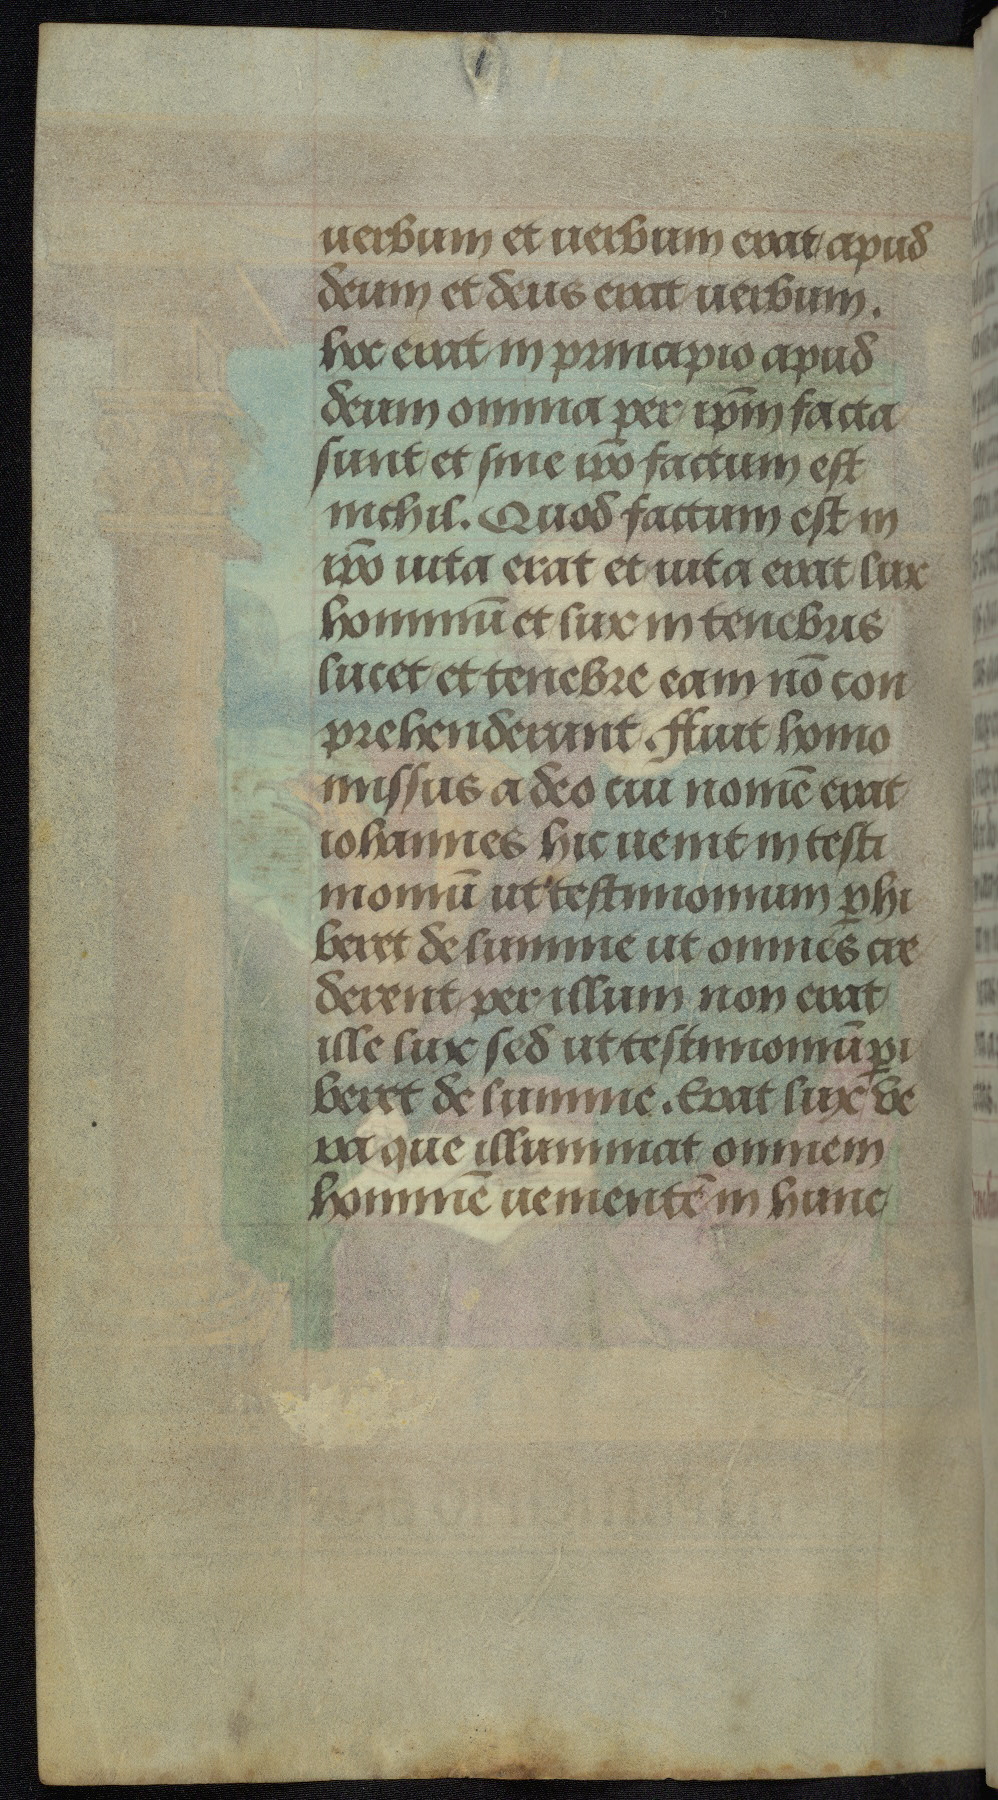 uerbum et uerbum erat apud
deum et deus erat uerbum.
hoc erat in principio apud
deum omnia per ip̄m facta
sunt et sine ip̄o factum est
nichil. Quod factum est in
ip̄o uita erat et uita erat lux
hominū et lux in tenebris
lucet et tenebre eam nō con
prehenderunt. ffuit homo
missus a deo cui nomē erat
iohannes hic uenit in testi
moniū ut testimonium ꝑhi
beret de lumine ut omnes cre
derent per illum non erat
ille lux sed ut testimoniū ꝑi
beret de lumine. Erat lux ve
ra que illuminat omnem
hominē uenientē in hunc